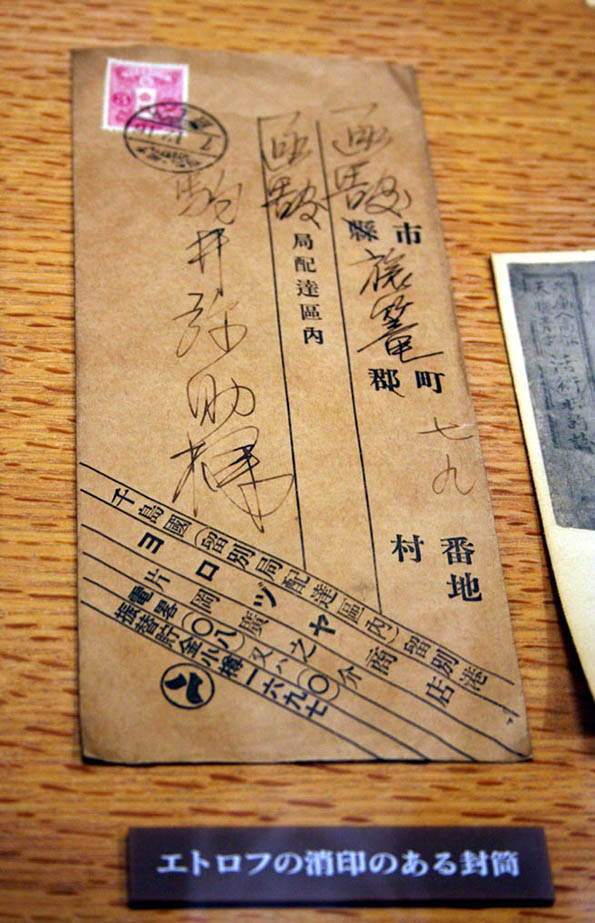 函館市縣旅篭町郡七九番地村
函館局配達區內
駒井弥助様
千島國(留別局配達區內)留別港
ヨロヅヤ商店
片岡廣之介
電畧(〇八)又ハ(〇)
振替貯金小樽一六九七
エトロフの消印のある封筒